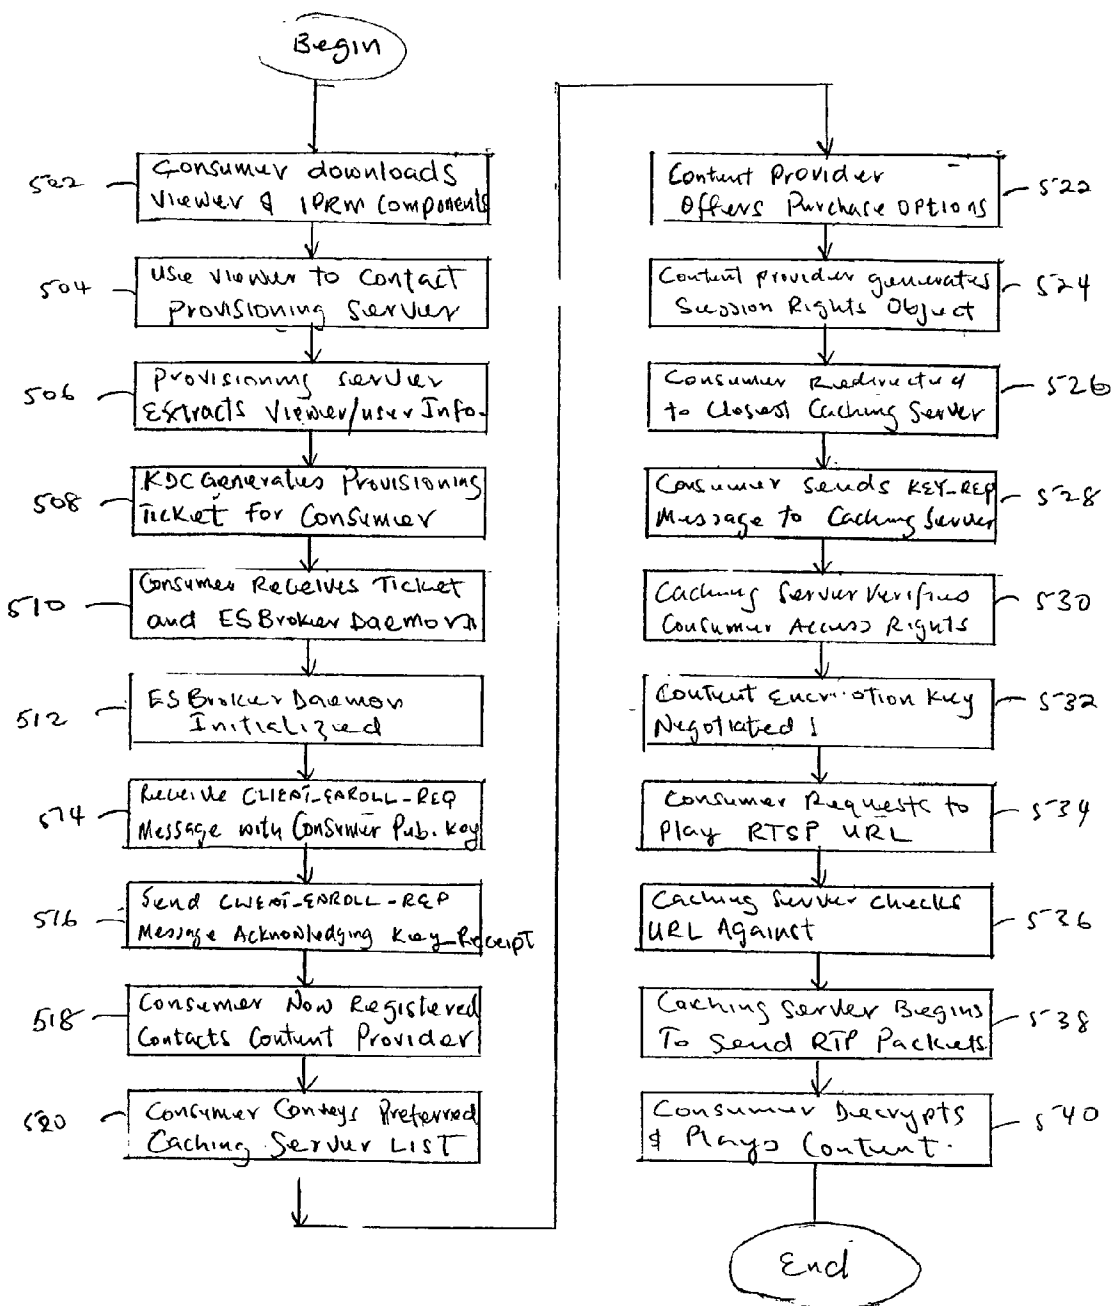 Begin
502
Consumer downloads
Viewer & IPRM Components
504
Use Viewer to Contact
Provisioning Server
506
Provisioning Server
Extracts Viewer/User Info.
508
KDC Generates Provisioning
Ticket For Consumer
510
Consumer Receives Ticket
and ESBroker Daemon
512
ESBroker Daemon
Initialized
514
Receive CLIENT_ENROLL_REQ
Message with Consumer Pub. Key
516
Send CLIENT_ENROLL_REP
Message Acknowledging Key_Receipt
518
Consumer Now Registered
Contacts Content Provider
520
Consumer Conveys Preferred
Caching Server LIST
Content Provider
Offers Purchase Options
522
Content Provider generates
Session Rights Object
524
Consumer Redirected
to Closest Caching Server
526
Consumer Sends KEY_REP
Message to Caching Server
528
Caching Server Verifies
Consumer Access Rights
530
Content Encryption Key
Negotiated
532
Consumer Requests to
Play RTSP URL
534
Caching Server checks
URL Against
536
Caching Server Begins
To Send RTP Packets
538
Consumer Decrypts
& Plays Content.
540
End